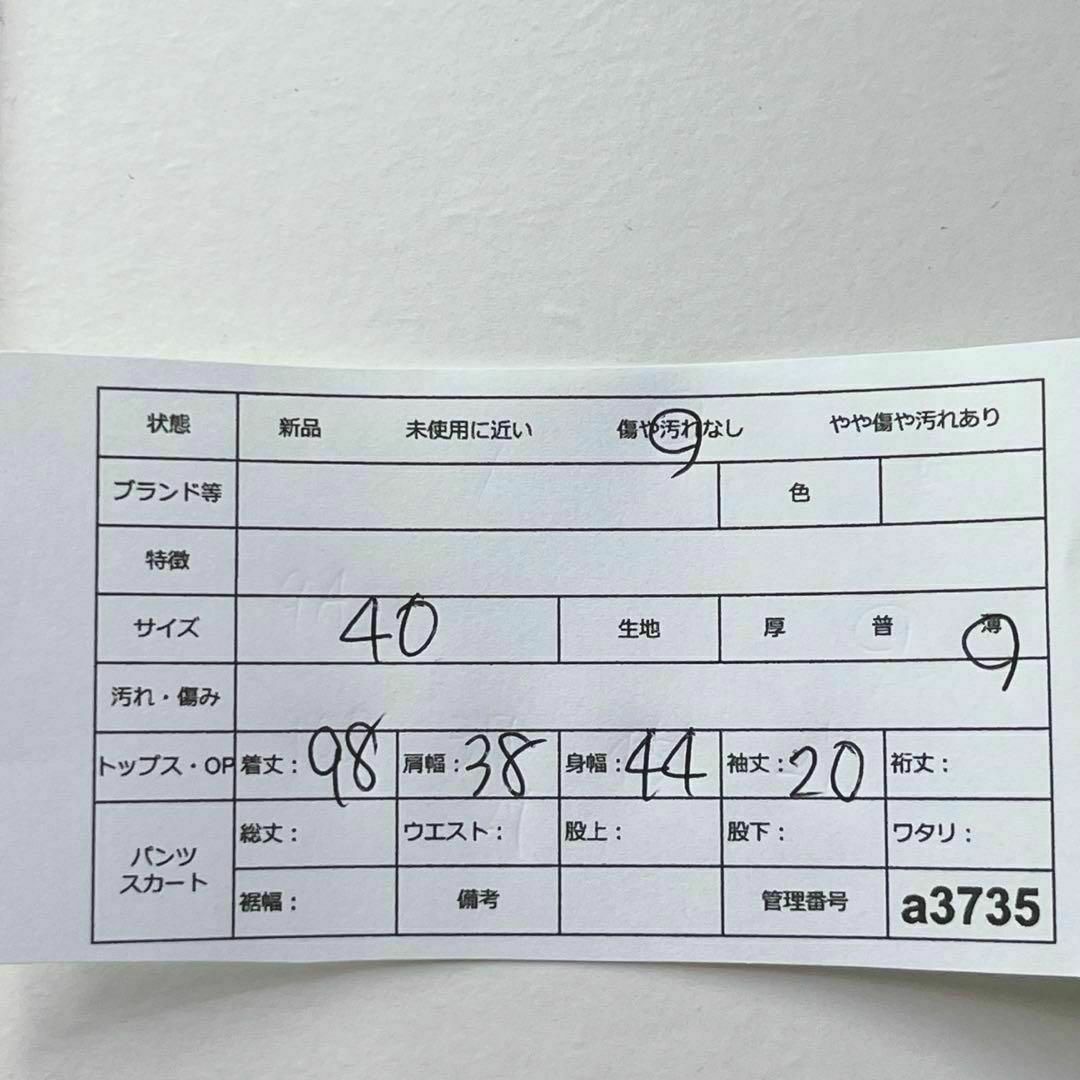 状態 新品 未使用に近い 傷や汚れなし やや傷や汚れあり
ブランド等 色
特徴
サイズ 40 生地 厚 普 薄
汚れ・傷み
トップス・OP 着丈：98 肩幅：38 身幅：44 袖丈：20 裄丈：
パンツ スカート 総丈： ウエスト： 股上： 股下： ワタリ：
裾幅： 備考 管理番号 a3735